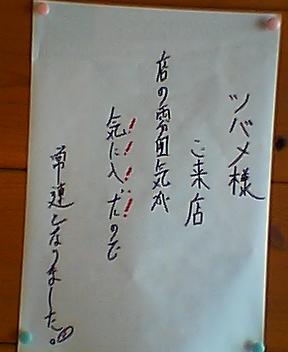 ツバメ様
ご来店
店の雰囲気が
気に入ったので
常連となりました。